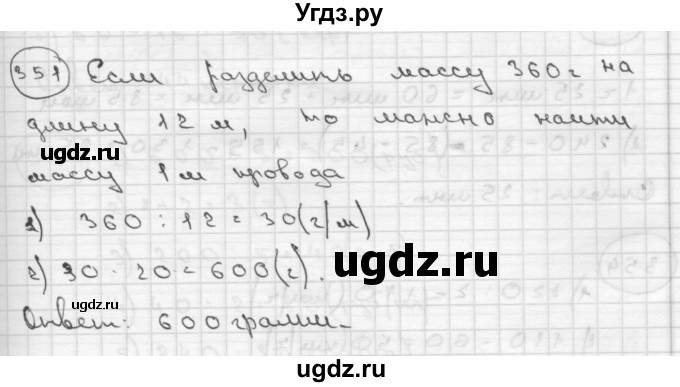 Угдз.ру
351 Если разделить массу 360 г на
длину 12 м, то можно найти
массу 1 м провода
1) 360 : 12 = 30 (г/м)
2) 30 · 20 = 600 (г).
Ответ: 600 грамм.
ugdz.ru
ugdz.ru
ugdz.ru
ugdz.ru
ugdz.ru
ugdz.ru